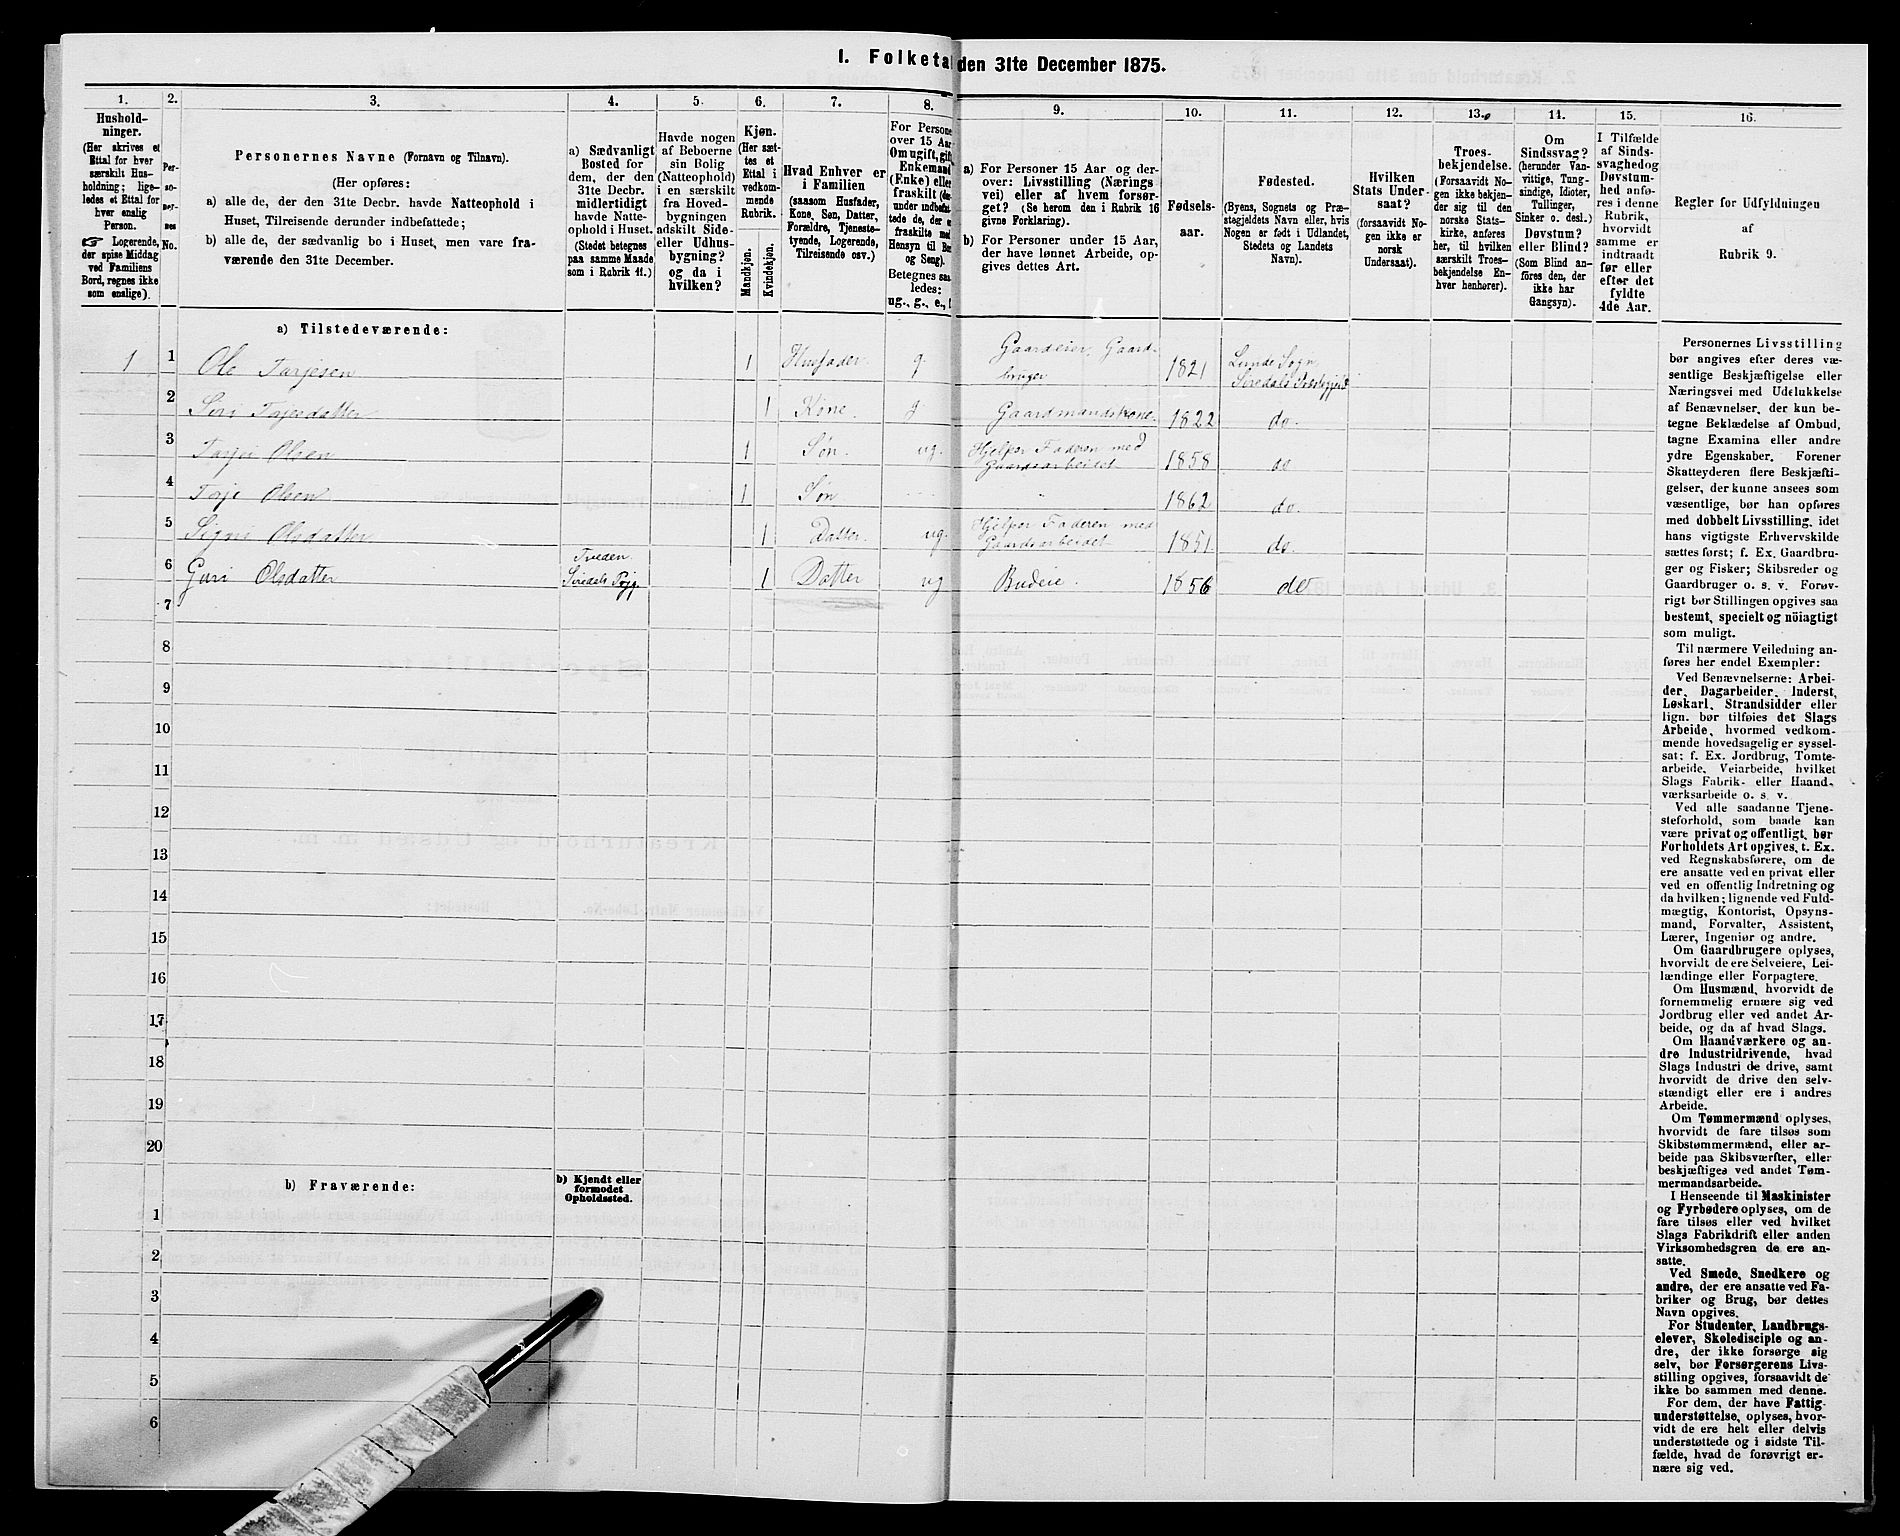 1. Folketal den 31te December 1875.
1.
Hushold-
ninger.
(Her skrives et
Ettal for hver
særskilt Hus-
holdning; lige-
ledes et Ettal for
hver enslig
Person.
☞ Logerende,
der spise Middag
ved Familiens
Bord, regnes ikke
som enslige).
2.
Per-
so-
ner-
nes
No.
3.
Personernes Navne (Fornavn og Tilnavn).
(Her opføres:
a) alle de, der den 31te Decbr. havde Natteophold i
Huset, Tilreisende derunder indbefattede;
b) alle de, der sædvanlig bo i Huset, men vare fra-
værende den 31te December.
4.
a) Sædvanligt
Bosted for
dem, der den
31te Decbr.
midlertidigt
havde Natte-
ophold i Huset.
(Stedet betegnes
paa samme Maade
som i Rubrik 11.)
5.
Havde nogen
af Beboerne
sin Bolig
(Natteophold)
i en særskilt
fra Hoved-
bygningen
adskilt Side-
eller Udhus-
bygning?
og da i
hvilken?
6.
Kjøn.
(Her sæt-
tes et
Ettal i
vedkom-
mende
Rubrik.
Mandkjøn.
Kvindekjøn.
7.
Hvad Enhver er
i Familien
(saasom Husfader,
Kone, Søn, Datter,
Forældre, Tjeneste-
tyende, Logerende,
Tilreisende osv.)
8.
For Persone
over 15 Aar
Om ugift, gift,
Enkemand
(Enke) eller
fraskilt
under indbefat-
tede de, der e
fraskilte med
Hensyn til Bo
og Seng).
Betegnes saa-
ledes:
ug., g., e.,
9.
a) For Personer 15 Aar og der-
over: Livsstilling (Nærings
vei) eller af hvem forsør-
get? (Se herom den i Rubrik 16
givne Forklaring).
b) For Personer under 15 Aar,
der have lønnet Arbeide, op-
gives dettes Art.
10.
Fødsels-
aar.
11.
Fødested.
(Byens, Sognets og Præ-
stegjeldets Navn eller, hvis
Nogen er født i Udlandet,
Stedets og Landets
Navn).
12.
Hvilken
Stats Under-
saat?
(forsaavidt No-
gen ikke er
norsk
Undersaat).
13.
Troes-
bekjendelse.
(Forsaavidt No-
gen ikke bekjen-
der sig til den
norske Stats-
kirke, anføres
her, til hvilken
særskilt Troes-
bekjendelse En-
hver henhører).
14.
Om
Sindssvag?
(herunder Van-
vittige, Tung-
sindige, Idioter,
Tullinger,
Sinker o. desl.)
Døvstum?
eller Blind?
(Som Blind an-
føres den, der
ikke har
Gangsyn).
15.
I Tilfælde
af Sinds-
svaghed og
Døvstum-
hed anfø-
res i denne
Rubrik,
hvorvidt
samme er
indtraadt
før eller
efter det
fyldte
4de Aar.
16.
Regler for Udfyldningen
af
Rubrik 9.
a) Tilstedeværende:
1 1 Ole Tarjesen 1 Husfader g. Gaardeier, Gaard-
bruger 1821 Lunde Sogn,
Siredals Præstegjeld
2 Siri Tajesdatter 1 Kone. g Gaardmandskone. 1822 do.
3 Tarjei Olsen 1 Søn. ug. Hjelper Faderen med
Gaardsarbeidet 1858 do
4 Taje Olsen 1 Søn " 1862 do.
5 Signi Olsdatter 1 Datter. ug. Hjelper Faderen med
Gaardsarbeidet 1851. do.
6 Guri Olsdatter Tveden.
Siredals Pgj. 1 Datter ug Budeie. 1856 do
7
8
9
10
11
12
13
14
15
16
17
18
19
20
b) Fraværende:
b) Kjendt eller
formodet
Opholdssted.
1
2
3
4
5
6
Personernes Livsstilling
bør angives efter deres væ-
sentlige Beskjæftigelse eller
Næringsvei med Udelukkelse
af Benævnelser, der kun be-
tegne Beklædelse af Ombud,
tagne Examina eller andre
ydre Egenskaber. Forener
Skatteyderen flere Beskjæfti-
gelser, der kunne ansees som
væsentlige, bør han opføres
med dobbelt Livsstilling, idet
hans vigtigste Erhvervskilde
sættes først; f. Ex. Gaardbru-
ger og Fisker; Skibsreder og
Gaardbruger o. s. v. Forøv-
rigt bør Stillingen opgives saa
bestemt, specielt og nöiagtigt
som muligt.
Til nærmere Veiledning an-
føres her endel Exempler:
Ved Benævnelserne: Arbei-
der, Dagarbeider, Inderst,
Løskarl, Strandsidder eller
lign. bør tilføies det Slags
Arbeide, hvormed vedkom-
mende hovedsagelig er syssel-
sat; f. Ex. Jordbrug, Tomte-
arbeide, Veiarbeide, hvilket
Slags Fabrik- eller Haand-
værksarbeide o. s. v.
Ved alle saadanne Tjene-
steforhold, som baade kan
være privat og offentligt, bør
Forholdets Art opgives, t. Ex.
ved Regnskabsførere, om de
ere ansatte ved en privat eller
ved en offentlig Indretning og
da hvilken; lignende ved Fuld-
mægtig, Kontorist, Opsyns-
mand, Forvalter, Assistent,
Lærer, Ingeniør og andre.
Om Gaardbrugere oplyses,
hvorvidt de ere Selveiere, Lei-
lændinge eller Forpagtere.
Om Husmænd, hvorvidt de
fornemmelig ernære sig ved
Jordbrug eller ved andet Ar-
beide, og da af hvad Slags.
Om Haandværkere og an-
dre Industridrivende, hvad
Slags Industri de drive, samt
hvorvidt de drive den selv-
stændigt eller ere i andres
Arbeide.
Om Tømmermænd oplyses,
hvorvidt de fare tilsøs som
Skibstømmermænd, eller ar-
beide paa Skibsværfter, eller
beskjæftiges ved andet Tøm-
mermandsarbeide.
I Henseende til Maskinister
og Fyrbødere oplyses, om de
fare tilsøs eller ved hvilket
Slags Fabrikdrift eller anden
Virksomhedsgren de ere an-
satte.
Ved Smede, Snedkere og
andre, der ere ansatte ved Fa-
briker og Brug, bør dettes
Navn opgives.
For Studenter, Landbrugs-
elever, Skoledisciple og an-
dre, der ikke forsørge sig
selv, bør Forsørgerens Livs-
stilling opgives, forsaavidt de
ikke bo sammen med denne.
For dem, der have Fattig-
understøttelse, oplyses, hvor-
vidt de ere helt eller delvis
understøttede og i sidste Til-
fælde, hvad de forøvrigt er-
nære sig ved.